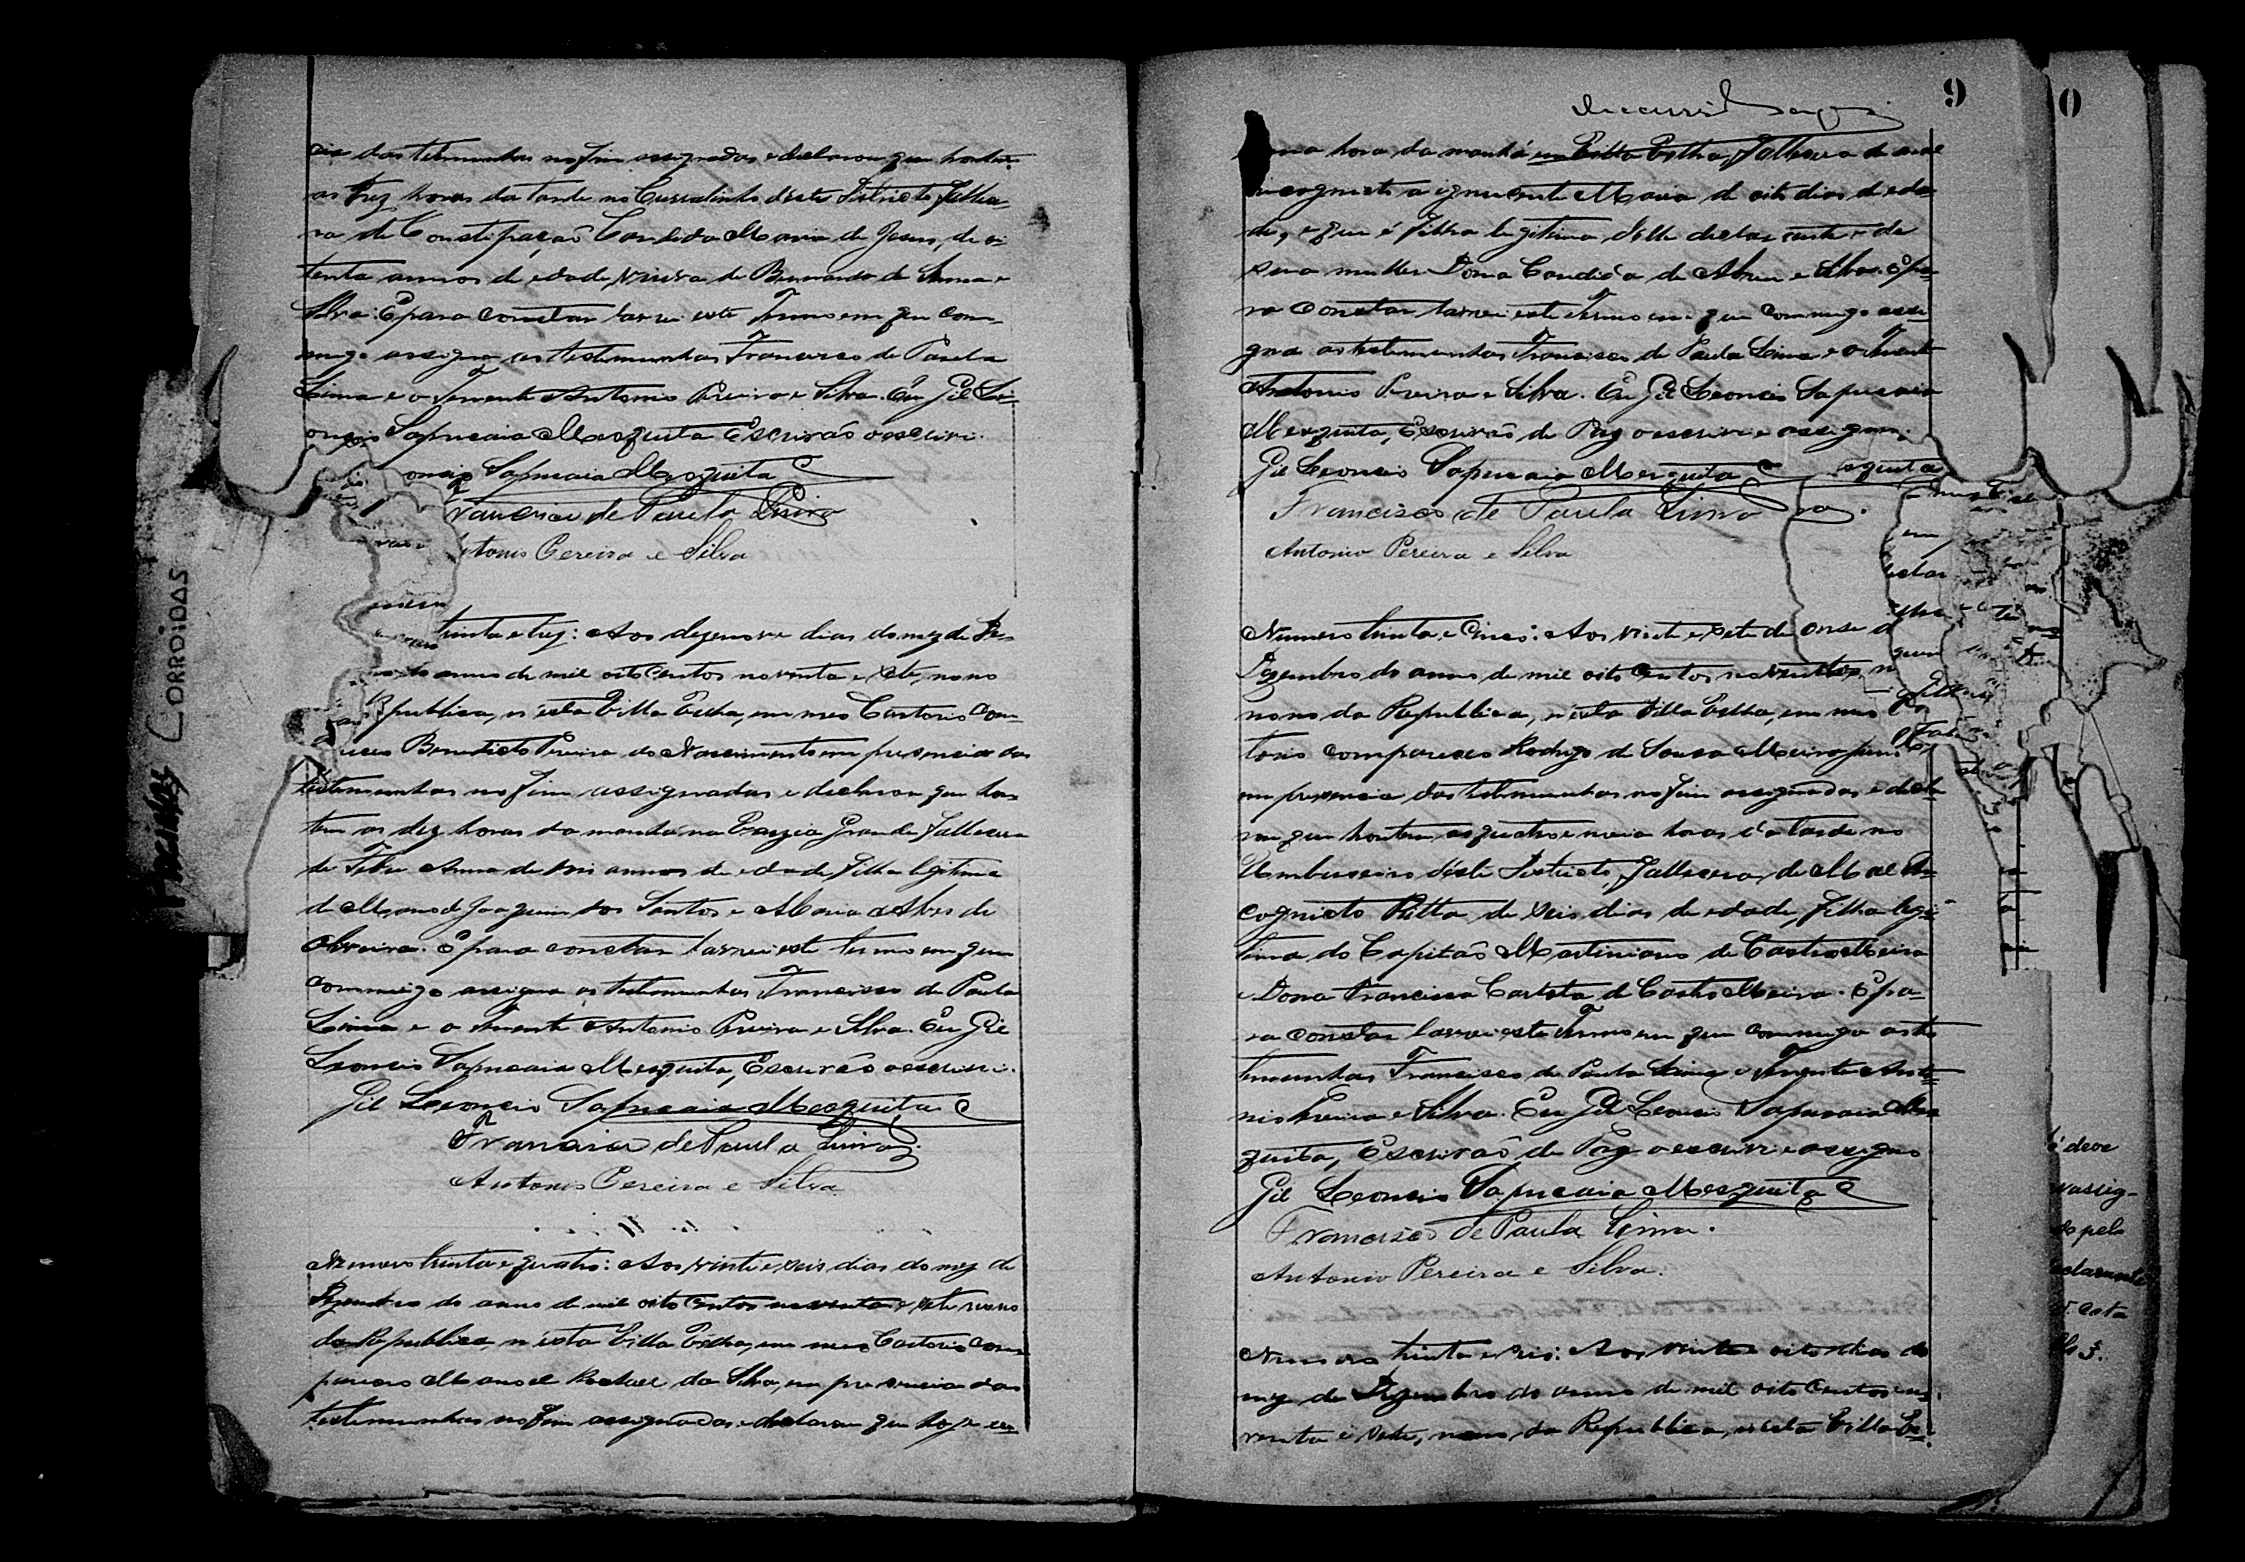 das testemunhas no fim assignadas e declarou que hontem
as trez horas da tarde no Curralinho d'este Districto fallece-
ra de Constipação Candida Maria de Jesus, de oi
tenta annos de edade, viuva de Bernardo de Senna e
Silva. E para constar lavrei este Termo em que com-
migo assigna as testemunhas Francisco de Paula
Lima e o Tenente Antonio Pereira e Silva. Eu Gil Le-
oncio Sapucaia Mesquita Escrivão o escrivi.
oncio Sapucaia Mesquita
Francisco de Paula Lima
Antonio Pereira e Silva
trinta e trez: Aos dezenove dias do mez de De-
anno de mil oito centos noventa e sete, nono
Republica, n'esta Villa Velha, em meo Cartorio com-
receo Benedicto Pereira do Nascimento em presencia das
testemunhas no fim assignadas e declarou que hon-
tem as dez horas da manhã na Varzea Grande falleceu
de febre Anna de dois annos de edade filha legitima
de Manoel Joaquim dos Santos e Maria Alves de
Oliveira. E para constar lavrei este termo em que
commigo assigna as testemunhas Francisco de Paula
Lima e o Tenente Antonio Pereira e Silva. Eu Gil
Leoncio Sapucaia Mesquita, Escrivão o escrivi.
Gil Leoncio Sapucaia Mesquita
Francisco de Paula Lima
Antonio Pereira e Silva
Numero trinta e quatro: Aos vinte e seis dias do mez de
Dezembro do anno de mil oito centos noventa e sete nono
da Republica, n'esta Villa Velha, em meo Cartorio com-
pareceo Manoel da Silva, em presencia das
testemunhas no fim assignadas e declarou que hoje em
CORROIDAS
9
0
uma hora da manhã em Villa Velha, fallecera de mal
incognito a ignocente Maria de oito dias de eda-
de, e que é filha legitima d'elle declarante e de
sua mulher Dona Candida de Abreu e Silva. E pa-
ra constar lavrei este Termo em que commigo assi-
gna as testemunhas Francisco de Paula Lima e o Tenente
Antonio Pereira e Silva. Eu Gil Leoncio Sapucaia
Mesquita, Escrivão de Paz o escrivi e assigno.
Gil Leoncio Sapucaia Mesquita
Francisco de Paula Lima
Antonio Pereira e Silva
Numero trinta e Cinco: Aos vinte e sete de
Dezembro do anno de mil oito centos noventa
nono da Republica, n'esta Villa Velha, em meo
torio compareceo Rodrigo de Sousa Meira
em presencia das testemunhas no fim assignadas e decla-
rou que hontem as quatro e meia horas da tarde no
Umbuseiro d'este Districto, fallecera de Mal In-
cognicto Ritta, de seis dias de edade, filha legi-
tima do Capitão Martiniano de Castro Meira
e Dona Francisca Carlota de Castro Meira. E pa-
ra constar lavrei este Termo em que commigo as tes
temunhas Francisco de Paula Lima e Tenente Anto-
nio Pereira e Silva. Eu Gil Leoncio Sapucaia Mes
quita, Escrivão de Paz o escrivi e assigno
Gil Leoncio Sapucaia Mesquita
Francisco de Paula Lima.
Antonio Pereira e Silva.
Numero trinta e seis: Aos vinte e oito dias do
mez de Dezembro do anno de mil oito centos no-
venta e sete, nono, da Republica, n'esta Villa Ve-
deve
assig-
pelo
declarante